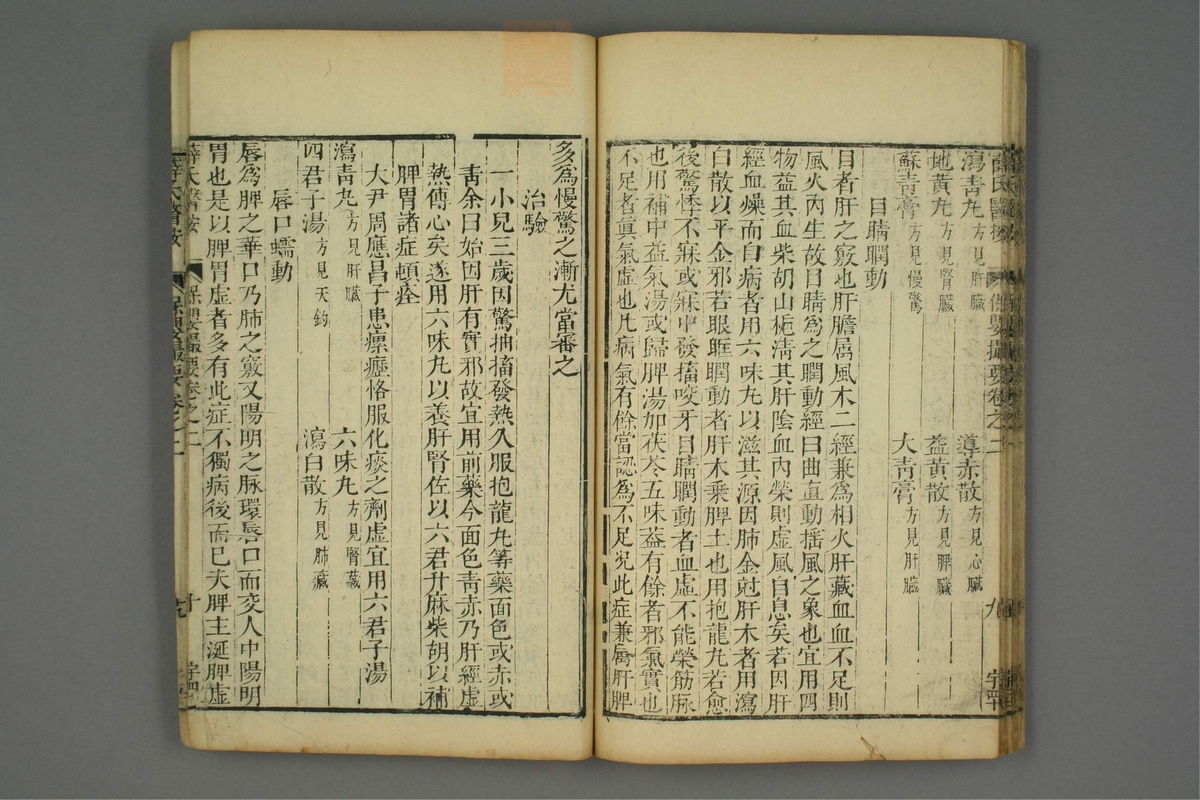 薛氏醫按 保嬰撮要卷之二 九
瀉青丸方見肝臟 導赤散方見心臟
地黃丸方見腎臟 益黃散方見脾臟
蘇青膏方見慢驚 大青膏方見肝臟
目睛瞤動
目者肝之竅也肝膽屬風木二經兼為相火肝藏血血不足則
風火內生故目睛為之瞤動經曰曲直動搖風之象也宜用四
物益其血柴胡山梔清其肝陰血內榮則虛風自息矣若因肝
經血燥而自病者用六味丸以滋其源因肺金尅肝木者用瀉
白散以平金邪若眼眶瞤動者肝木乘脾土也用抱龍丸若愈
後驚悸不寐或寐中發搐咬牙目睛瞤動者血虛不能榮筋脉
也用補中益氣湯或歸脾湯加茯苓五味蓋有餘者邪氣實也
不足者眞氣虛也凡病氣有餘當認為不足况此症兼屬肝脾
多為慢驚之漸尤當審之
治驗
一小兒三歲因驚抽搐發熱久服抱龍丸等藥面色或赤或
青余曰始因肝有實邪故宜用前藥今面色青赤乃肝經虛
熱傳心矣遂用六味丸以養肝腎佐以六君升麻柴胡以補
脾胃諸症頓痊
大尹周應昌子患瘰癧恪服化痰之劑虛宜用六君子湯
瀉青丸方見肝臟 六味丸方見腎藏
四君子湯方見天釣 瀉白散方見肺臟
唇口蠕動
唇為脾之華口乃肺之竅又陽明之脉環唇口而交人中陽明
胃也是以脾胃虛者多有此症不獨病後而巳夫脾主涎脾虛
薛氏醫按 保嬰撮要卷之二 十